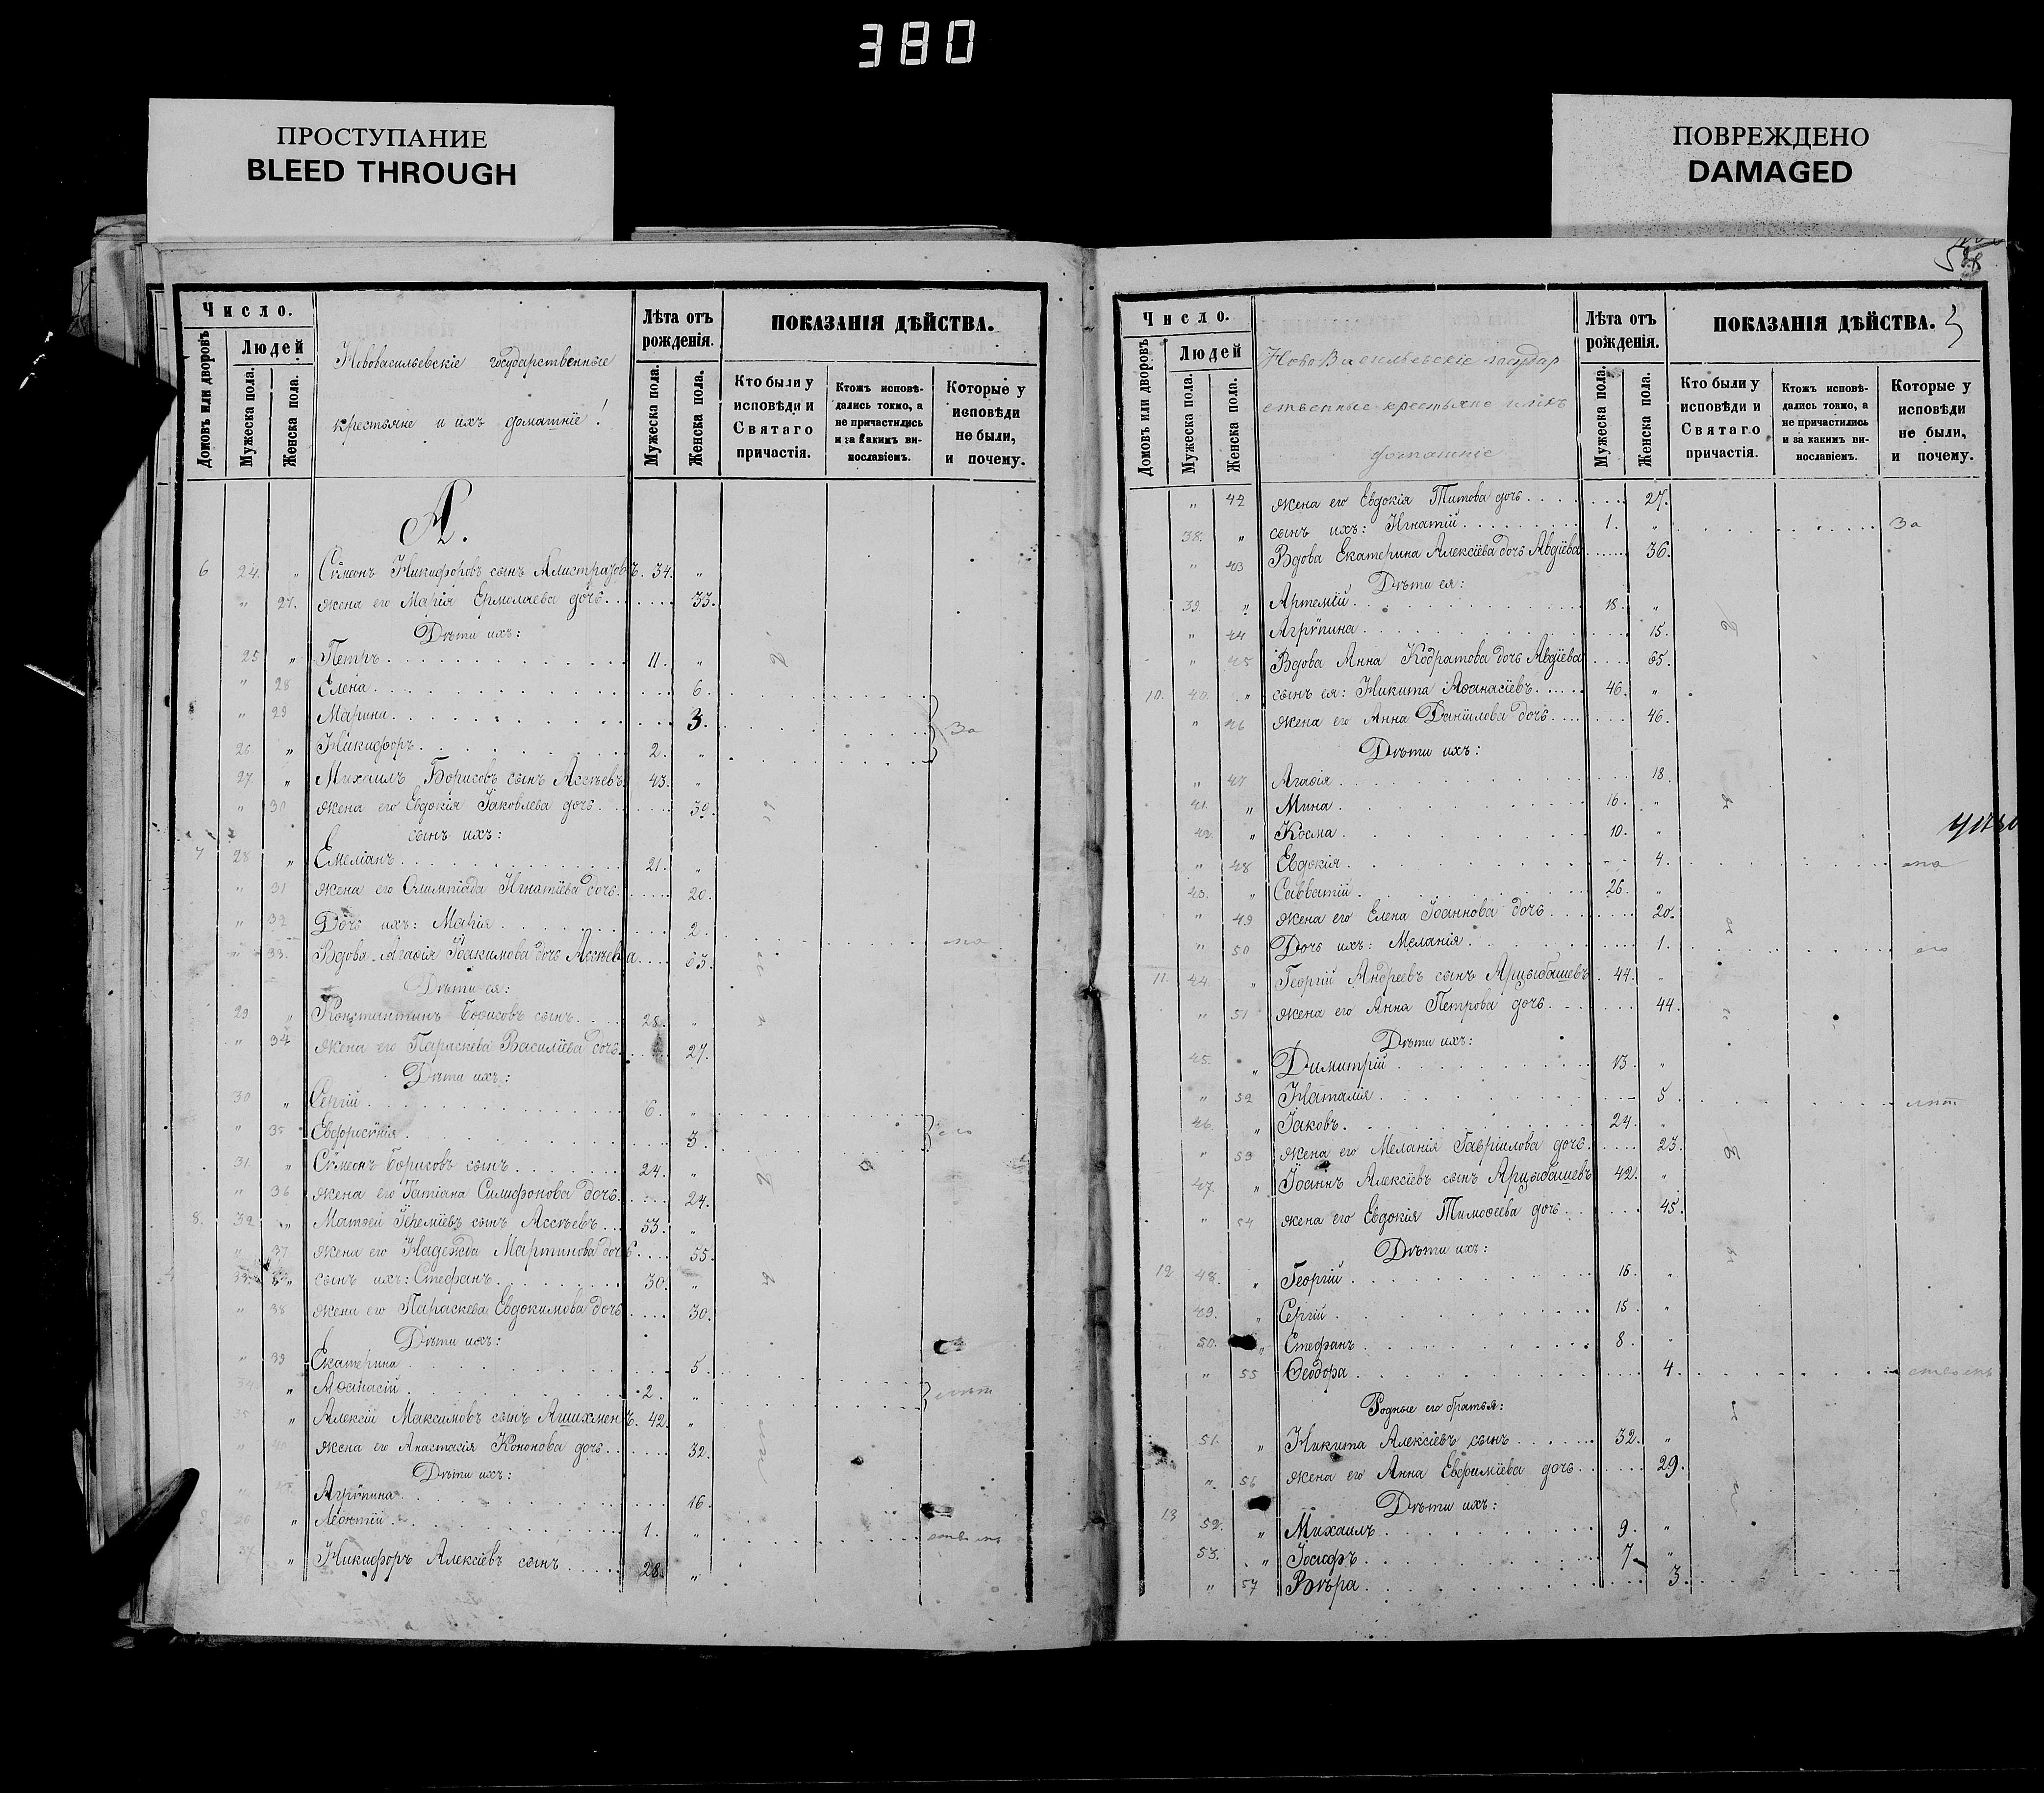 380
ПРОСТУПАНИЕ
BLEED THROUGH
ПОВРЕЖДЕНО
DAMAGED
Число.
Домовъ или дворовъ
Людей
Мужеска пола.
Женска пола.
Нововасильевскіе государственные
крестьяне и ихъ домашніе!
Лѣта отъ рожденія.
Мужеска пола.
Женска пола.
ПОКАЗАНІЯ ДѢЙСТВА.
Кто были у исповѣди и Святаго причастія.
Ктожъ исповѣдались токмо, а не причастились и за какимъ винословіемъ.
Которые у исповѣди не были, и почему.
А.
6 24. " Сѵмеонъ Никифоровъ сынъ Алистратовъ. 34. "
" 27. жена его Марія Ермолаева дочь. 33.
Дѣти ихъ:
25 " Петръ 11. "
" 28 Елена 6.
" 29 Марина 3.
За
26 " Никифоръ 2. "
27 " Михаилъ Борисовъ сынъ Ассѣевъ 43. "
" 30 жена его Евдокія Іаковлева дочь 39.
сынъ ихъ:
7 28 " Емеліанъ 21. "
" 31 жена его Олимпіада Игнатіева дочь. 20.
" 32 Дочь ихъ: Марія 2.
" 33. Вдова Агаѳія Іоакимова дочь Ассѣева 63.
Дѣти ея:
29 " Константинъ Борисовъ сынъ 28. "
" 34 жена его Параскева Василіева дочь. 27.
Дѣти ихъ:
30 " Сергій 6. "
" 35 Евфросѵнія 3.
31. " Сѵмеонъ Борисовъ сынъ 24. "
" 36 жена его Татіана Силифонова дочь. 24.
8. 32. " Матѳей Іереміевъ сынъ Ассѣевъ 53. "
" 37 жена его Надежда Мартинова дочь 55.
33. " сынъ ихъ: Стефанъ 30. "
" 38 жена его Параскева Евдокимова дочь 30.
Дѣти ихъ:
" 39 Екатерина 5.
34. " Аѳанасій 2. "
35 " Алексій Максимовъ сынъ Агишхменъ. 42. "
" 40 жена его Анастасія Кононова дочь 32.
Дѣти ихъ:
" Агрѵпина 16.
36 " Леонтій 1. "
37 " Никифоръ Алексіевъ сынъ 28. "
Число.
Домовъ или дворовъ
Людей
Мужеска пола.
Женска пола.
НовоВасильевскіе государ
ственные крестьяне и ихъ
домашніе
Лѣта отъ рожденія.
Мужеска пола.
Женска пола.
ПОКАЗАНІЯ ДѢЙСТВА.
Кто были у исповѣди и Святаго причастія.
Ктожъ исповѣдались токмо, а не причастились и за какимъ винословіемъ.
Которые у исповѣди не были, и почему.
" 42 жена его Евдокія Титова дочь 27.
38. " сынъ ихъ: Игнатій 1. " За
" 43 Вдова Екатерина Алексіева дочь Авдіева 36.
Дѣти ея:
39. " Артемій 18. "
" 44 Агрѵпина 15.
" 45 Вдова Анна Кодратова дочь Авдіева 65.
10. 40. " сынъ ея: Никита Аѳанасіевъ 46. "
" 46 жена его Анна Даніилова дочь 46.
Дѣти ихъ:
" 47 Агаѳія 18.
41. " Мина 16. "
42. " Косма 10. "
" 48 Евдокія 4.
43. " Савватій 26. "
" 49 жена его Елена Іоаннова дочь 20.
" 50 Дочь ихъ: Меланія 1.
11. 44. " Георгій Андреевъ сынъ Арцыбашевъ 44. "
" 51 жена его Анна Петрова дочь 44.
Дѣти ихъ:
45. " Димитрій 13. "
" 52 Наталія 5.
46. " Іаковъ 24. "
" 53 жена его Меланія Гавріилова дочь. 23.
47. " Іоаннъ Алексіевъ сынъ Арцыбашевъ 42. "
" 54 жена его Евдокія Тимоѳеева дочь 45.
Дѣти ихъ:
12 48. " Георгій 16. "
49. " Сергій 15. "
50. " Стефанъ 8. "
" 55 Ѳеодора 4.
Родные его братья:
51. " Никита Алексіевъ сынъ 32. "
" 56 жена его Анна Евфиміева дочь 29.
Дѣти ихъ:
13 52. " Михаилъ 9. "
53. " Іосифъ 7. "
" 57 Вѣра 3.